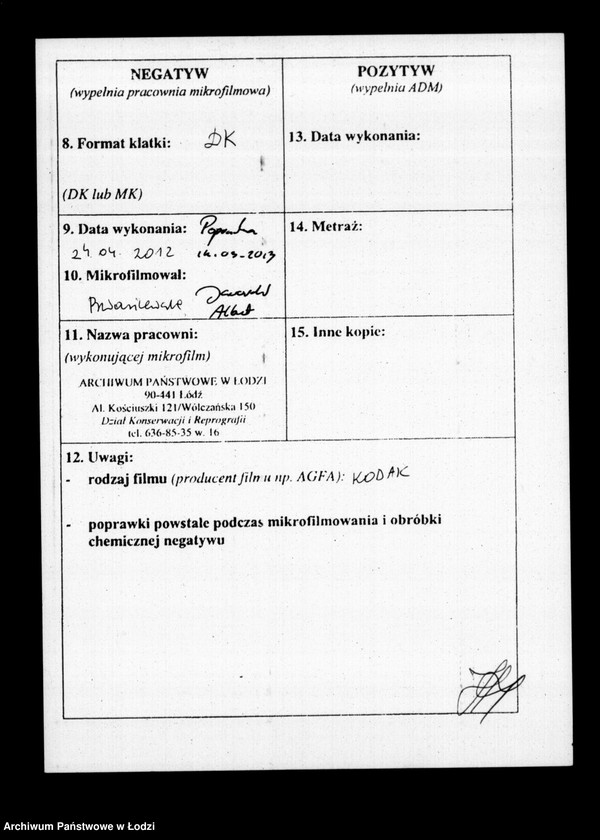 NEGATYW
(wypełnia pracownia mikrofilmowa)
8. Format klatki: DK
(DK lub MK)
9. Data wykonania: Poprawka
24.04.2012 14.03-2013
10. Mikrofilmował:
11. Nazwa pracowni:
(wykonującej mikrofilm)
ARCHIWUM PAŃSTWOWE W ŁODZI
90-441 Łódź
Al. Kościuszki 121/Wólczańska 150
Dział Konserwacji i Reprografii
tel. 636-85-35 w. 16
POZYTYW
(wypełnia ADM)
13. Data wykonania:
14. Metraż:
15. Inne kopie:
12. Uwagi:
- rodzaj filmu (producent filmu np. AGFA): KODAK
- poprawki powstałe podczas mikrofilmowania i obróbki
chemicznej negatywu
Archiwum Państwowe w Łodzi